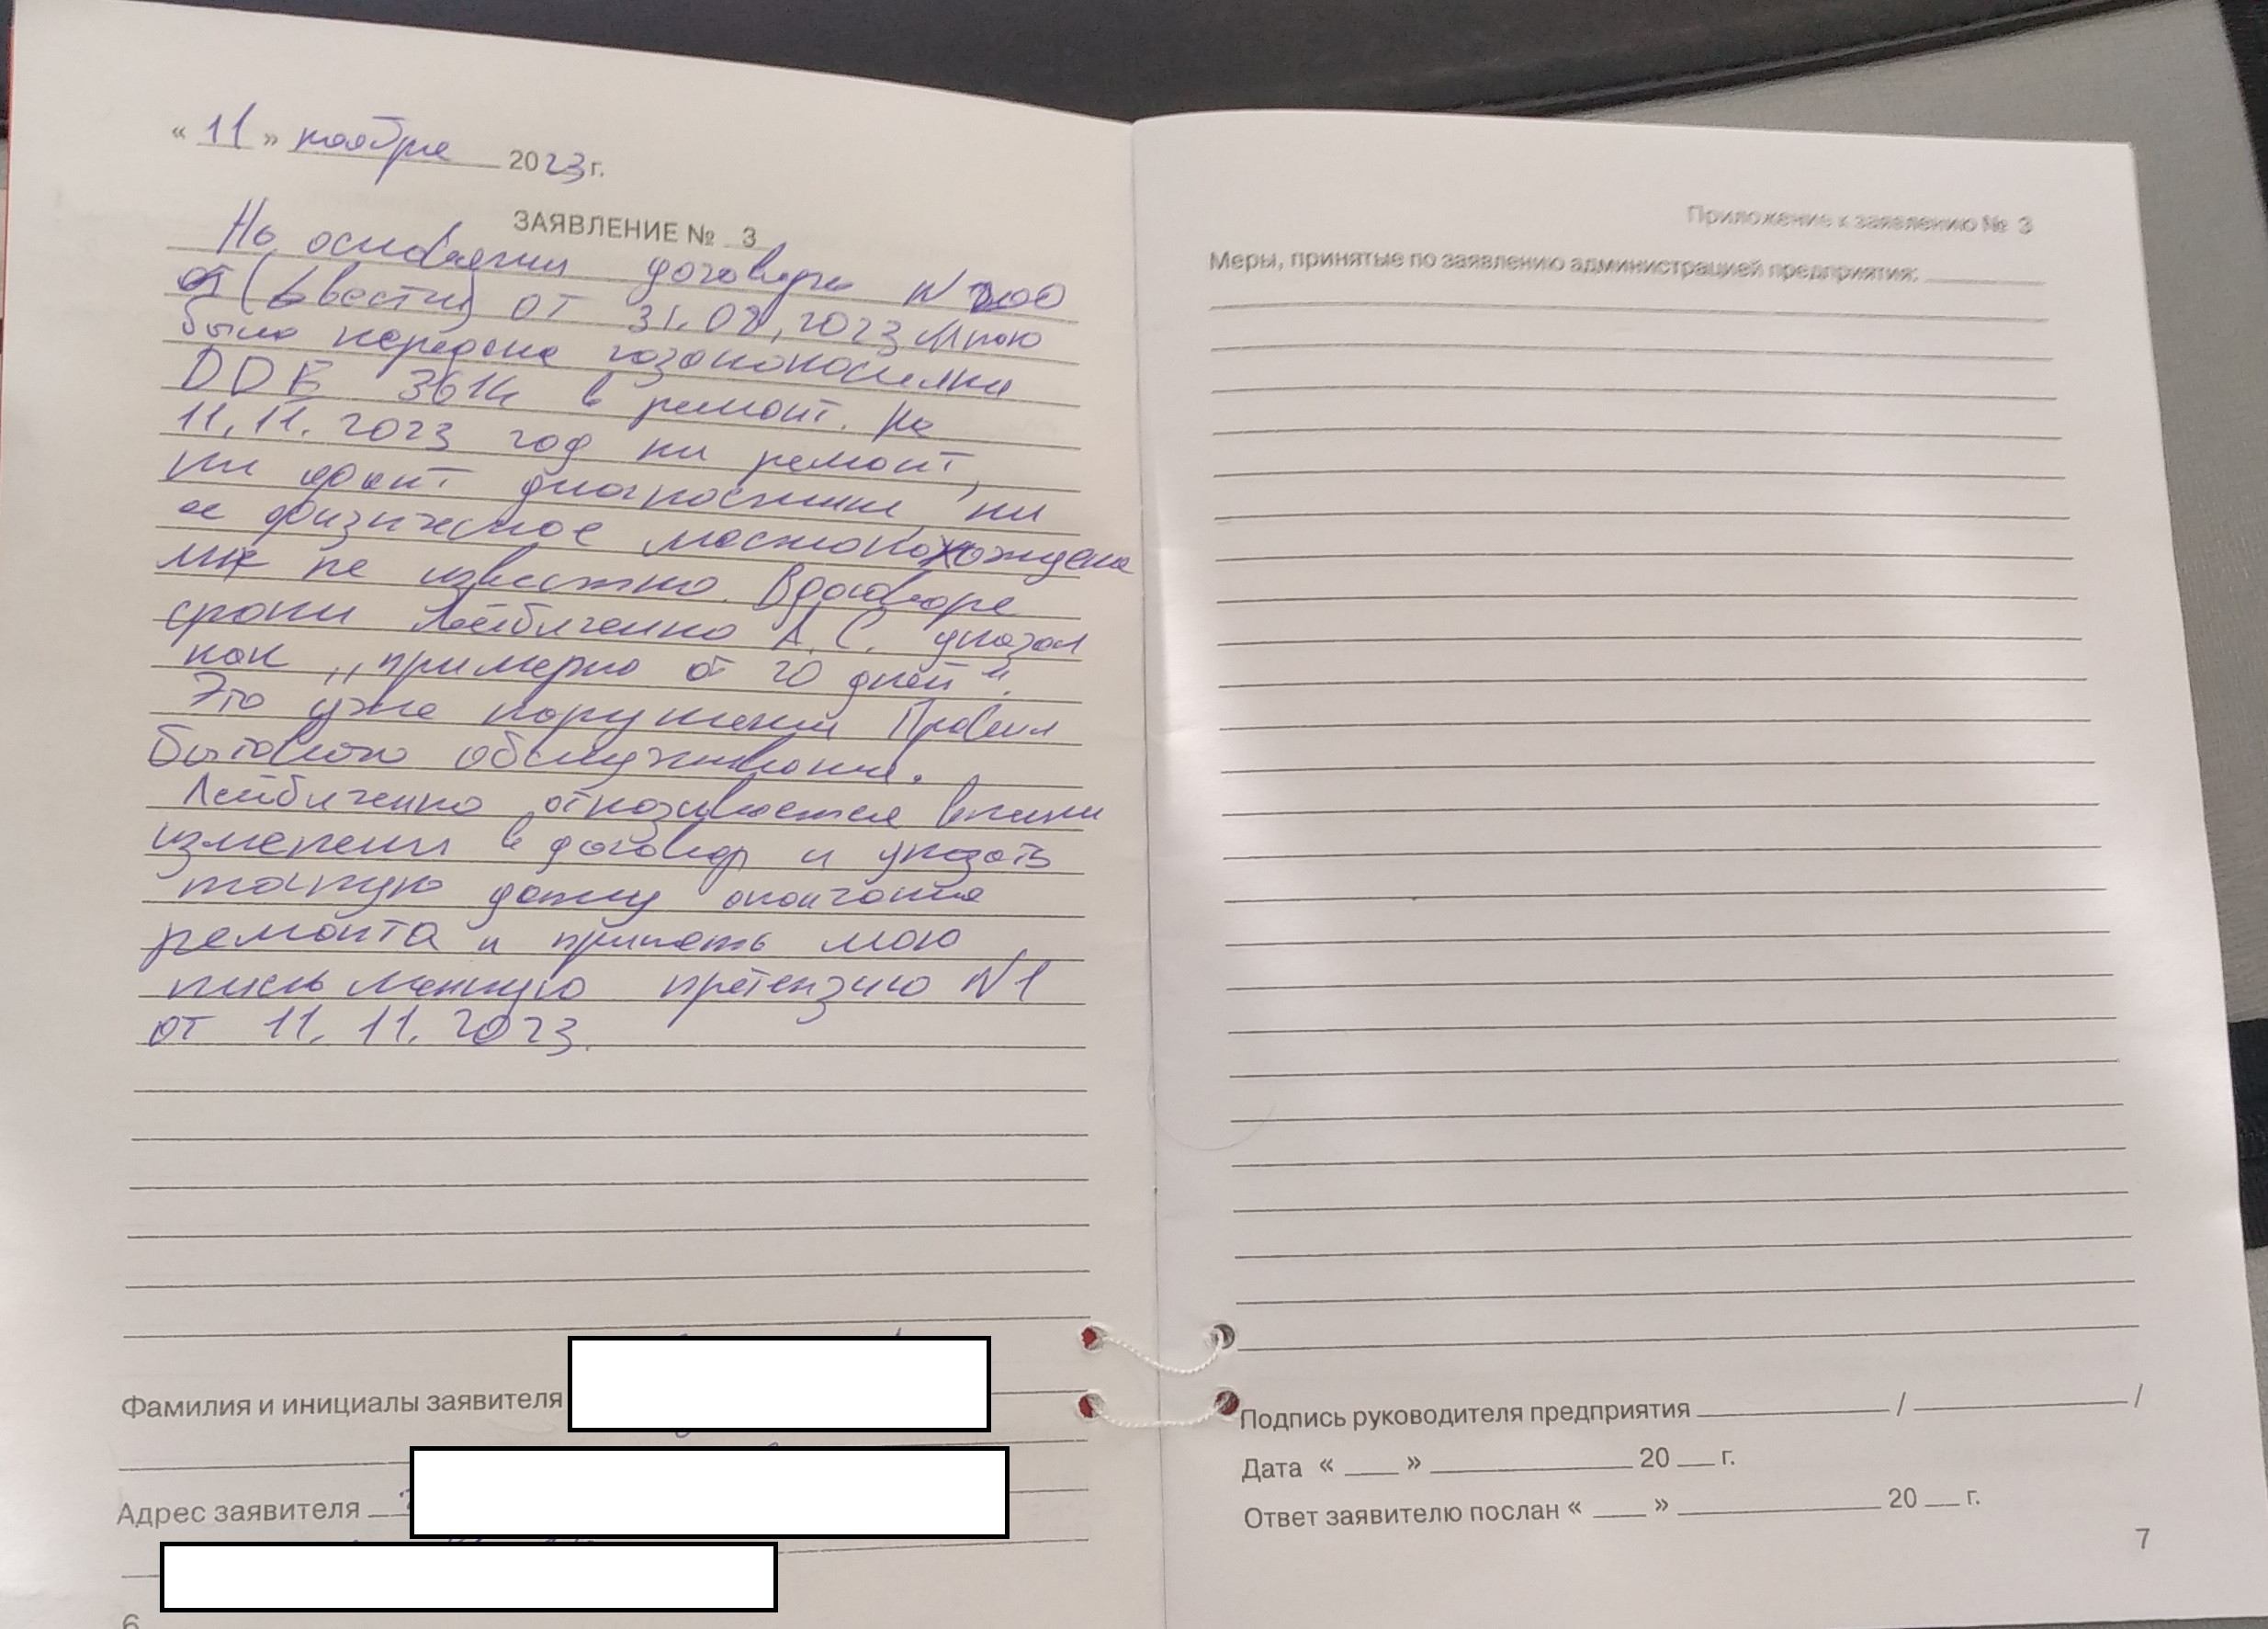 « 11 » ноября 2023 г.
ЗАЯВЛЕНИЕ № 3
На основании договора N 200
(двести) от 31.08.2023 Мною
была передана газонокосилка
DDE в ремонт. На
11.11.2023 год ни ремонт,
ни диагностики, ни
ее физическое
мне не известно. В договоре
сроки Лейбиченко А.С. указал
как „примерно от 20 дней".
Это уже нарушении Правил
бытового обслуживания.
Лейбиченко отказывается внести
изменения в договор и указать
точную дату окончания
ремонта и принять мою
письменную претензию N1
от 11.11.2023.
Фамилия и инициалы заявителя
Адрес заявителя
6
Приложение к заявлению № 3
Меры, принятые по заявлению администрацией предприятия:
Подпись руководителя предприятия / /
Дата « » 20 г.
Ответ заявителю послан « » 20 г.
7